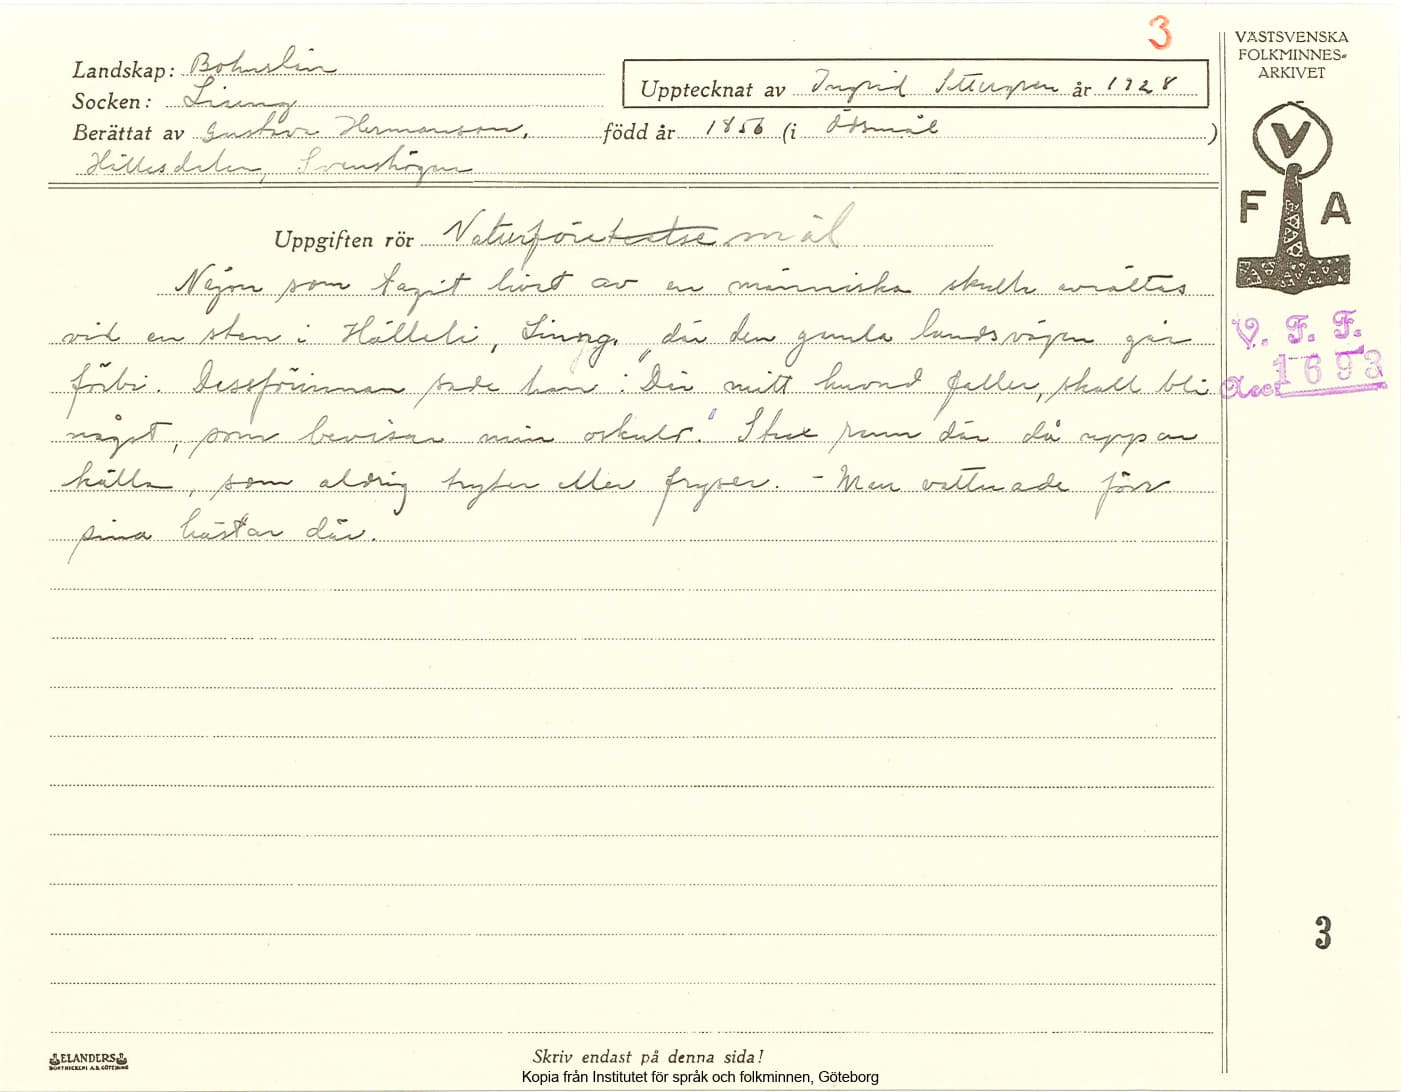 3
VÄSTSVENSKA
FOLKMINNES=
ARKIVET
Landskap: Bohuslän
Socken: Ljung
Upptecknat av Ingrid år 1928
Berättat av Gustava Hermansson, född år 1856 (i Ödsmål)
Hällesdalen, Svenshögen
V
F A
Uppgiften rör Naturföreteelse mål
Någon som tagit livet av en människa skulle avrättas
vid en sten i Hälleli, Ljung, där den gamla landsvägen går
förbi. Dessförinnan sade han: Där mitt huvud faller, skall bli
något, som bevisar min oskuld." Strax rann där då upp en
källa, som aldrig tryter eller fryser. - Man vattnade förr
sina hästar där.
V. F. F.
Acc. 1693
3
ELANDERS
BOKTRYCKERI A.B. GÖTEBORG
Skriv endast på denna sida!
Kopia från Institutet för språk och folkminnen, Göteborg